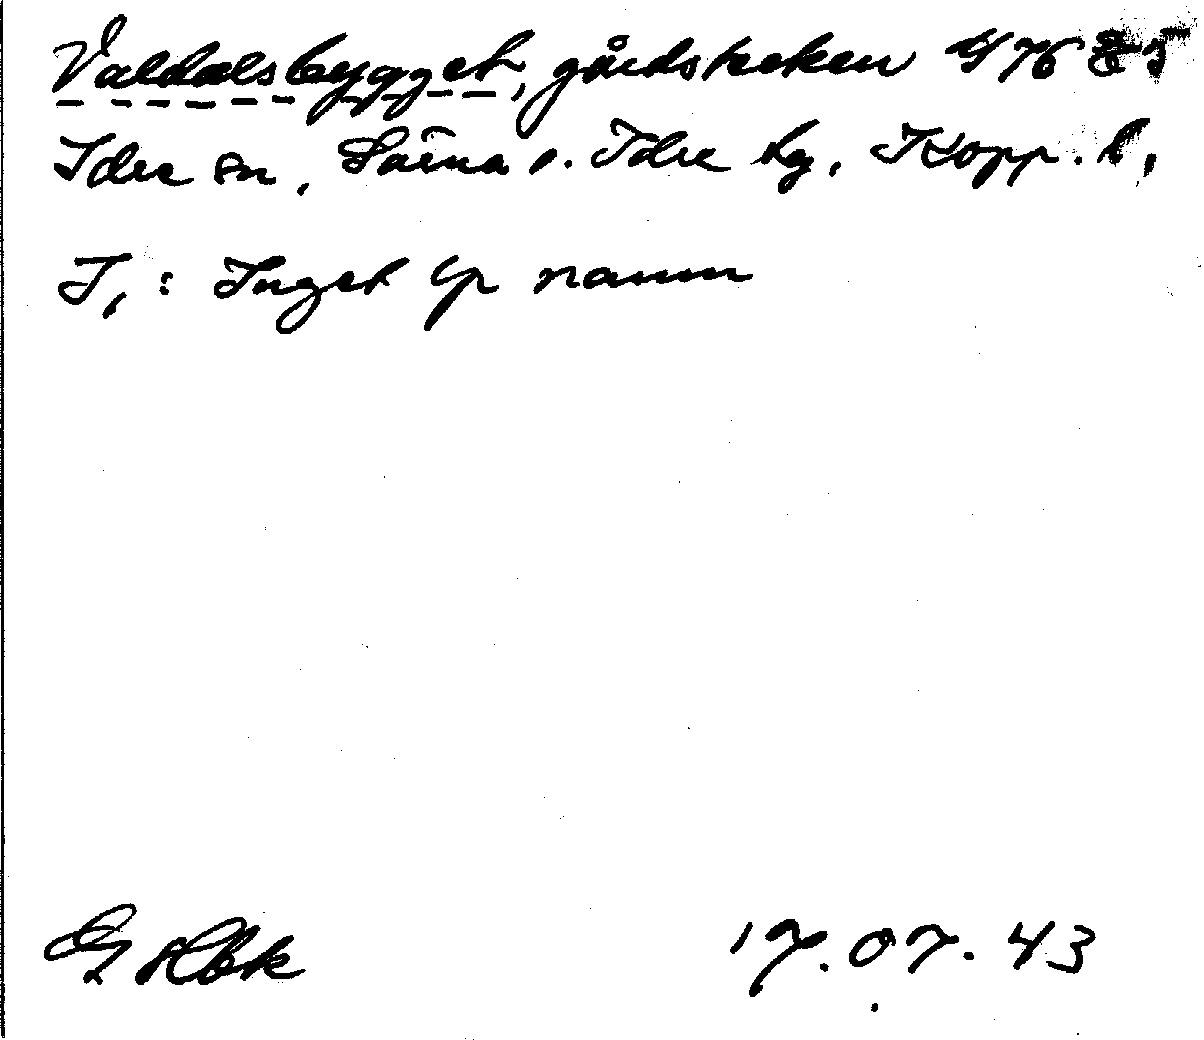 Valdalsbygget, gårdstecken 476 85
Idre sn, Särna o. Idre tg, Kopp. l,
I, : Inget ip namn
17.07.43